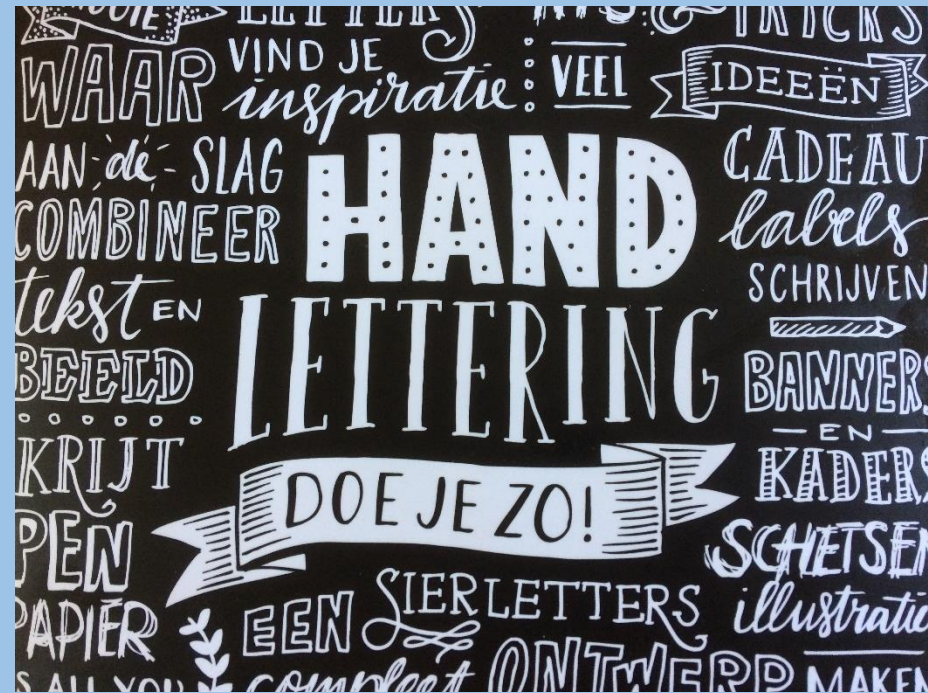 LETTERS
TRICKS
WAAR
VIND JE
inspiratie
VEEL
IDEEËN
AAN de - SLAG
COMBINEER
tekst EN
BEELD
KRIJT
PEN
PAPIER
HAND
LETTERING
DOE JE ZO!
CADEAU
labels
SCHRIJVEN
BANNERS
EN
KADERS
SCHETSEN
illustratie
EEN SIERLETTERS
S ALL YOU
compleet ONTWERP MAKEN